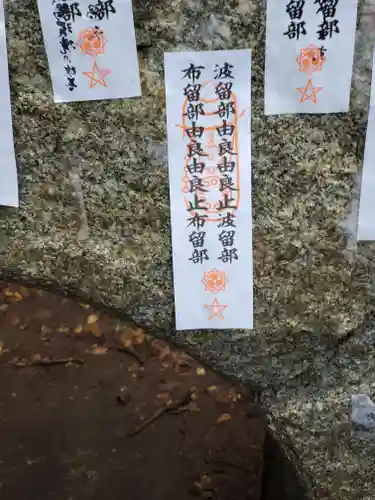 留部
留部
波留部由良由良止波留部
布留部由良由良止布留部
部